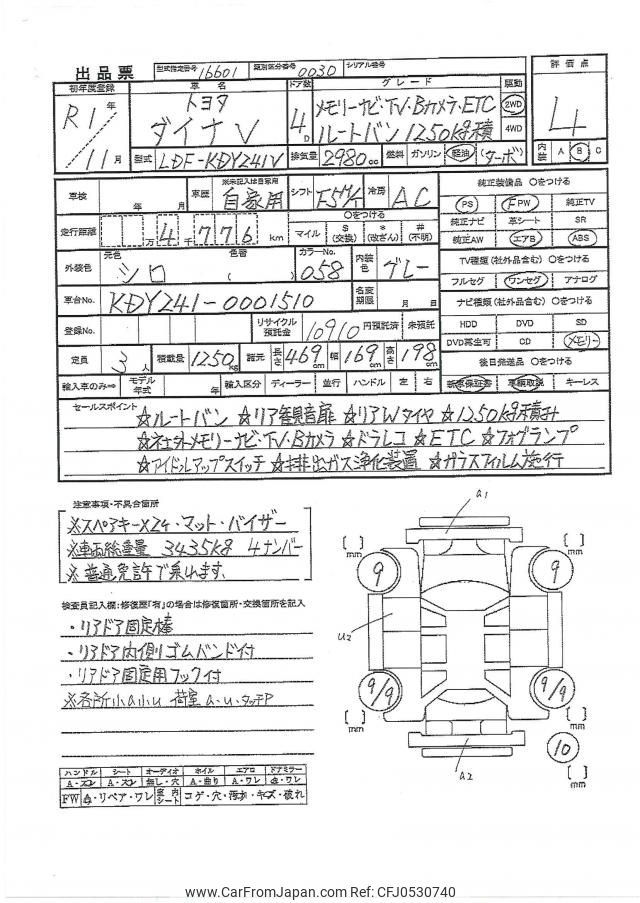 出品票 型式指定番号 16601 類別区分番号 0030 シリアル番号
初年度登録 車名 ドア数 グレード 駆動 評価点
R1年 トヨタ メモリーナビ・TV・Bカメラ・ETC 2WD
ダイナV 4D ルートバン 1250kg積 4WD 4
11月 型式 LDF-KDY241V 排気量 2980cc 燃料 ガソリン 軽油 (ターボ) 内装 A B C
車検 年 月 車歴 ※未記入は自家用 自家用 シフト F5M/T 冷房 AC 純正装備品 〇をつける
PS PW 純正TV
走行距離 万 4千776km 〇をつける マイル $(交換) *(改ざん) #(不明) 純正ナビ 革シート SR
純正AW エアB ABS
外装色 元色 シロ 色替 ( ) カラーNo. 058 内装色 グレー TV種類(社外品含む) 〇をつける
フルセグ ワンセグ アナログ
車台No. KDY241-0001510 名変期限 月 日 ナビ種類(社外品含む) 〇をつける
登録No. リサイクル預託金 10910円預託済 未預託 HDD DVD SD
DVD再生可 CD メモリー
定員 3人 積載量 1250kg 諸元 長さ 469cm 幅 169cm 高さ 198cm 後日発送品 〇をつける
輸入車のみ⇒ モデル年式 年 輸入区分 ディーラー 並行 ハンドル 左 右 新車保証書 車輌取説 キーレス
セールスポイント ☆ルートバン ☆リア観音扉 ☆リアWタイヤ ☆1250kg積み
☆社外メモリーナビ・TV・Bカメラ ☆ドラレコ ☆ETC ☆フォグランプ
☆アイドルアップスイッチ ☆排出ガス浄化装置 ☆ガラスフィルム施行
注意事項・不具合箇所
※スペアキー×2ケ・マット・バイザー
※車両総重量 3435kg 4ナンバー
※普通免許で乗れます。
検査員記入欄:修復歴「有」の場合は修復箇所・交換箇所を記入
・リアドア固定棒
・リアドア内側ゴムバンド付
・リアドア固定用フック付
※各所小a小u 荷室a・u・タッチP
ハンドル シート オーディオ ホイル エアロ ドアミラー
A・スレ A・スレ 無し・穴 A・曲り A・ワレ A・ワレ
FW A・リペア・ワレ 室内シート コゲ・穴・汚れ・キズ・破れ
a1
[ ]mm 9 9 [ ]mm
u2
9/9 9/9
[ ]mm [ ]mm
10
a2 [ ]mm
www.CarFromJapan.com Ref:CFJ0530740